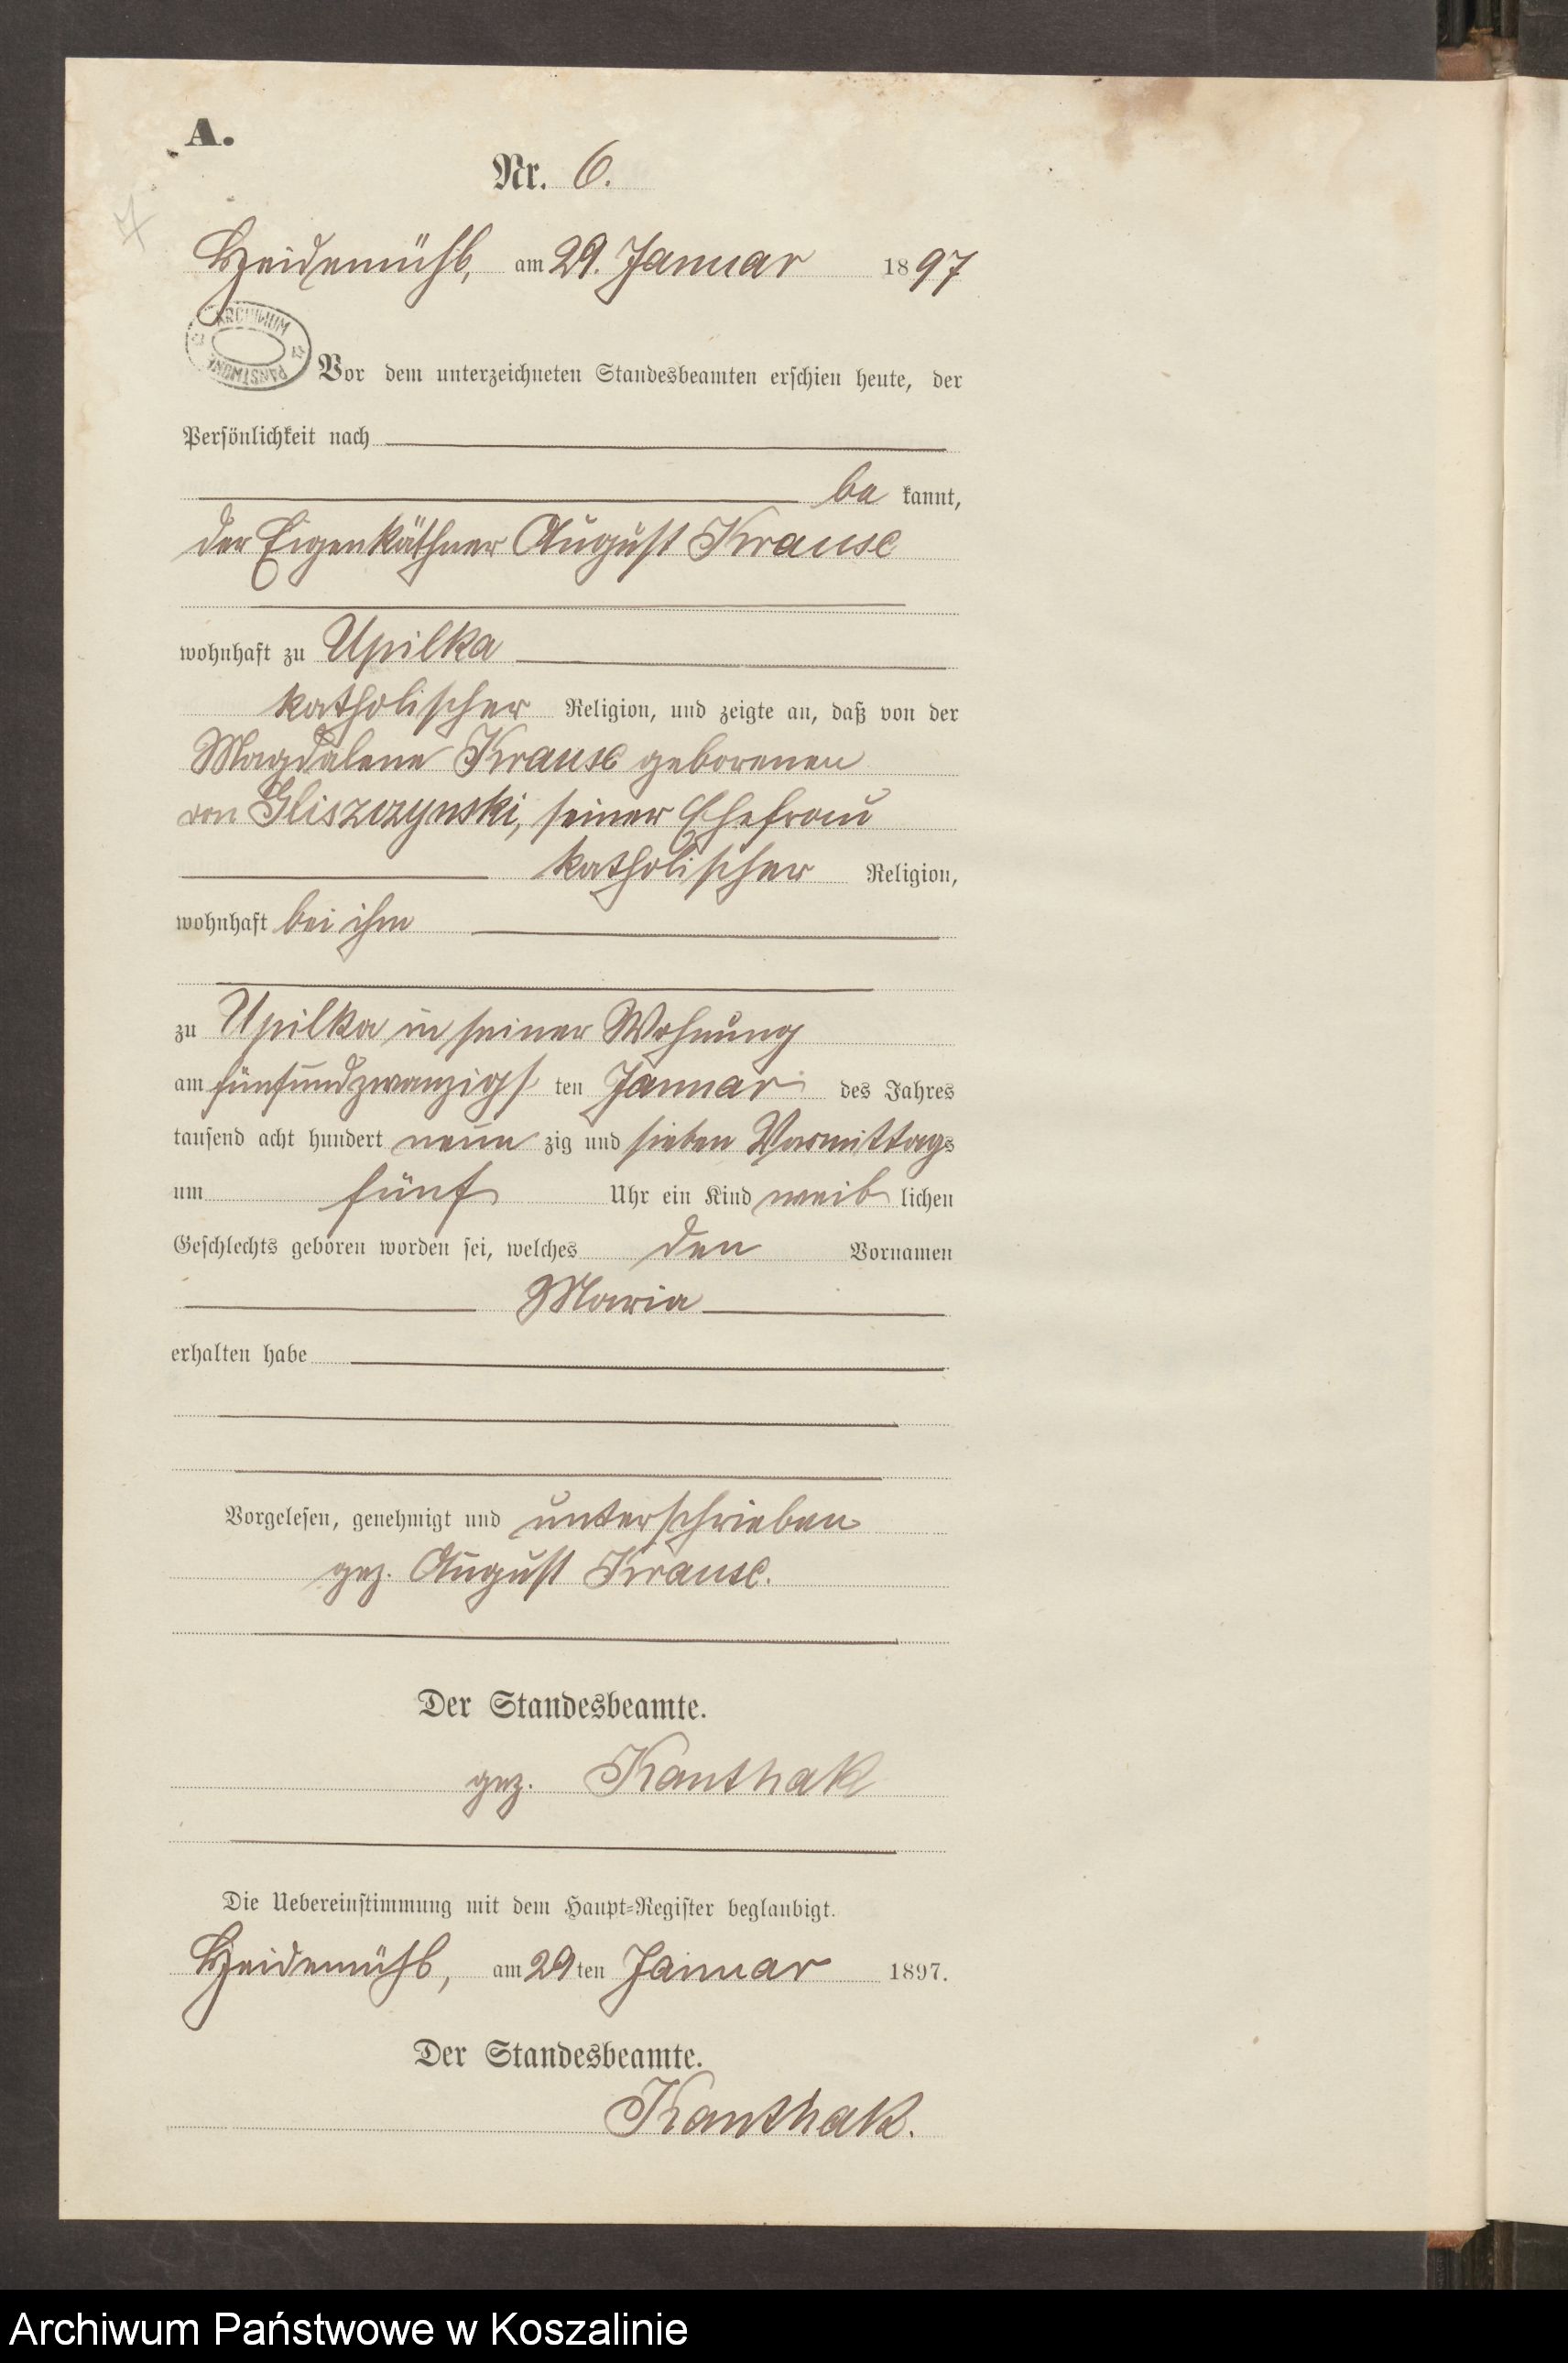 A.
Nr. 6.
Heidemühl, am 29. Januar 1897
ARCHIWUM
PAŃSTWOWE
Vor dem unterzeichneten Standesbeamten erschien heute, der
Persönlichkeit nach
be kannt,
der Eigenkäthner August Krause
wohnhaft zu Upilka
katholischer Religion, und zeigte an, daß von der
Magdalene Krause geborenen
von Gliszczynski, seiner Ehefrau
katholischer Religion,
wohnhaft bei ihm
zu Upilka in seiner Wohnung
am fünfundzwanzigs ten Januar des Jahres
tausend acht hundert neun zig und sieben Vormittags
um fünf Uhr ein Kind weib lichen
Geschlechts geboren worden sei, welches den Vornamen
Maria
erhalten habe
Vorgelesen, genehmigt und unterschrieben
gez. August Krause.
Der Standesbeamte.
gez. Kanthak
Die Uebereinstimmung mit dem Haupt=Register beglaubigt.
Heidemühl, am 29 ten Januar 1897.
Der Standesbeamte.
Kanthak.
Archiwum Państwowe w Koszalinie